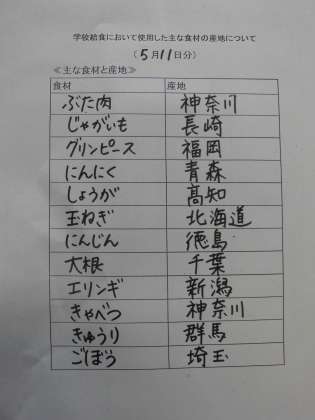 学校給食において使用した主な食材の産地について
（5月11日分）
≪主な食材と産地≫
食材 産地
ぶた肉 神奈川
じゃがいも 長崎
グリンピース 福岡
にんにく 青森
しょうが 高知
玉ねぎ 北海道
にんじん 徳島
大根 千葉
エリンギ 新潟
きゃべつ 神奈川
きゅうり 群馬
ごぼう 埼玉